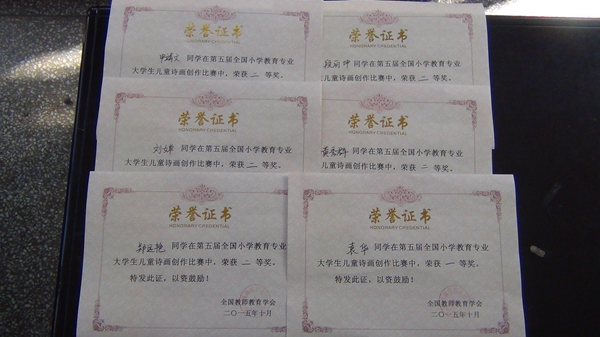 荣誉证书
HONORARY CREDENTIAL
同学在第五届全国小学教育专业
大学生儿童诗画创作比赛中，荣获 二 等奖。
荣誉证书
HONORARY CREDENTIAL
段丽坤 同学在第五届全国小学教育专业
大学生儿童诗画创作比赛中，荣获 二 等奖。
荣誉证书
HONORARY CREDENTIAL
刘婷 同学在第五届全国小学教育专业
大学生儿童诗画创作比赛中，荣获 二 等奖。
荣誉证书
HONORARY CREDENTIAL
同学在第五届全国小学教育专业
儿童诗画创作比赛中，荣获 等奖。
荣誉证书
HONORARY CREDENTIAL
同学在第五届全国小学教育专业
大学生儿童诗画创作比赛中，荣获 二 等奖。
特发此证，以资鼓励！
全国教师教育学会
二〇一五年十月
荣誉证书
HONORARY CREDENTIAL
袁华 同学在第五届全国小学教育专业
大学生儿童诗画创作比赛中，荣获 一 等奖。
特发此证，以资鼓励！
全国教师教育学会
二〇一五年十月